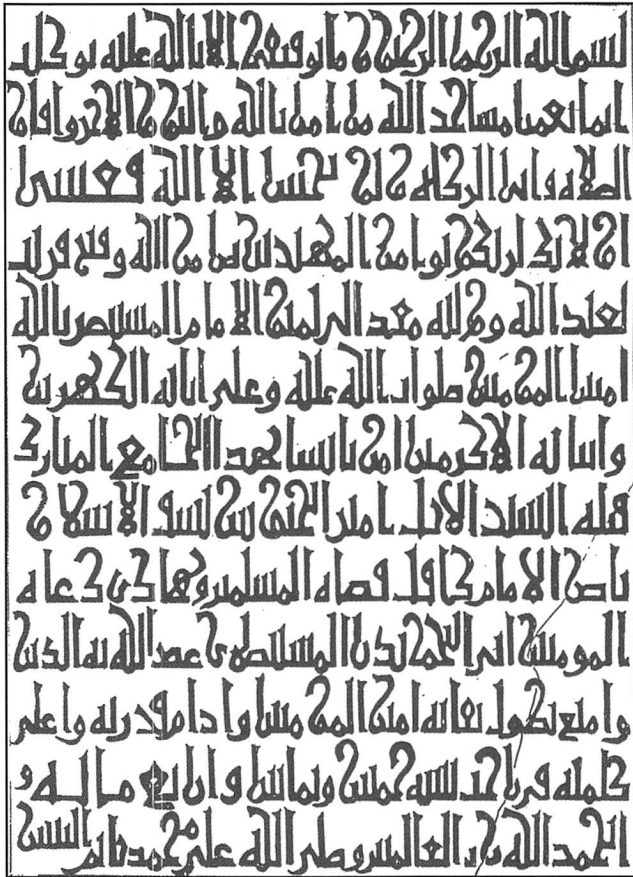 بسم الله الرحمن الرحيم وما توفيقي الا بالله عليه توكلت
انما يعمر مساجد الله من امن بالله واليوم الاخر واقام
الصلاه واتى الزكاه ولم يخش الا الله فعسى
اولئك ان يكونوا من المهتدين نصر من الله وفتح قريب
لعبد الله ووليه معد ابي تميم الامام المستنصر بالله
امير المؤمنين صلوات الله عليه وعلى ابائه الطاهرين
وابنائه الاكرمين امر بانشاء هذا الجامع المبارك
فتاه السيد الاجل امير الجيوش سيف الاسلام
ناصر الامام كافل قضاه المسلمين وهادي دعاه
المومنين ابو النجم بدر المستنصري عضد الله به الدين
وامتع بطول بقائه امير المؤمنين وادام قدرته واعلى
كلمته في رجب سنه خمس وثمانين واربع مائه و
الحمد لله رب العالمين وصلى الله على محمد خاتم النبيين